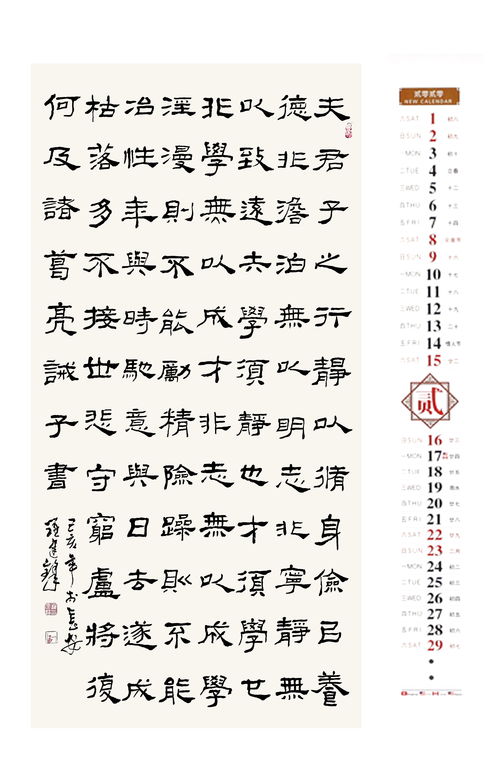 夫君子之行靜以脩身儉㠯養
德非澹泊無以明志非寧靜無
以致遠夫學須靜也才須學也
非學無以成才非志無以成學
淫漫則不能勵精險躁則不能
冶性年與時馳意與日去遂成
枯落多不接世悲守窮廬將復
何及諸葛亮誡子書
己亥年於長安
建鋒
贰零贰零
NEW CALENDAR
六 SAT 1 初八
日 SUN 2 初九
一 MON 3 初十
二 TUE 4 立春
三 WED 5 十二
四 THU 6 十三
五 FRI 7 十四
六 SAT 8 元宵节
日 SUN 9 十六
一 MON 10 十七
二 TUE 11 十八
三 WED 12 十九
四 THU 13 二十
五 FRI 14 情人节
六 SAT 15 廿二
贰
日 SUN 16 廿三
一 MON 17 廿四
二 TUE 18 廿五
三 WED 19 雨水
四 THU 20 廿七
五 FRI 21 廿八
六 SAT 22 廿九
日 SUN 23 二月
一 MON 24 初二
二 TUE 25 初三
三 WED 26 初四
四 THU 27 初五
五 FRI 28 初六
六 SAT 29 初七